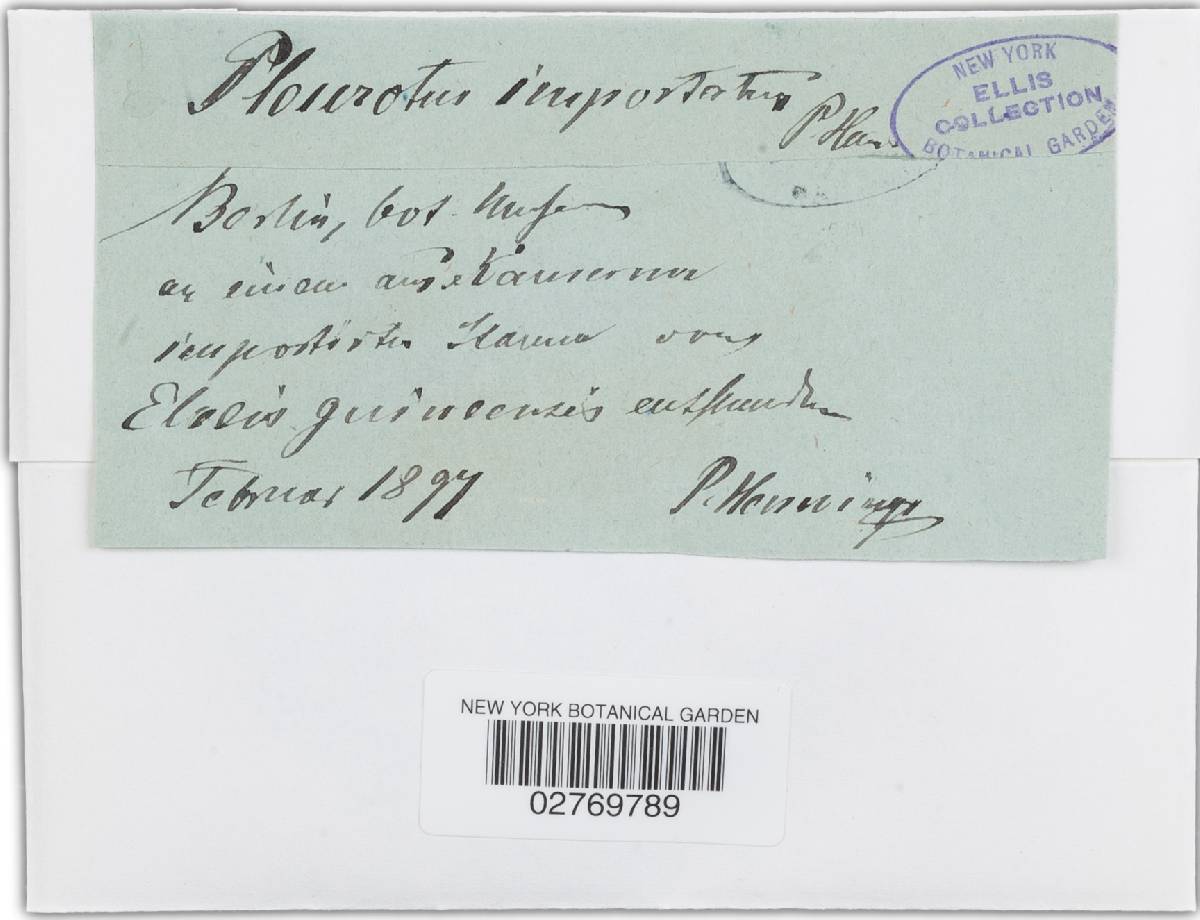 Pleurotus importatus
P. Henn
NEW YORK
ELLIS
COLLECTION
BOTANICAL GARDEN
Berlin, bot. Museum
an einem aus Kamerun
importirten Stamme von
Elaeis guineensis entstanden
Februar 1897 P. Hennings
NEW YORK BOTANICAL GARDEN
02769789